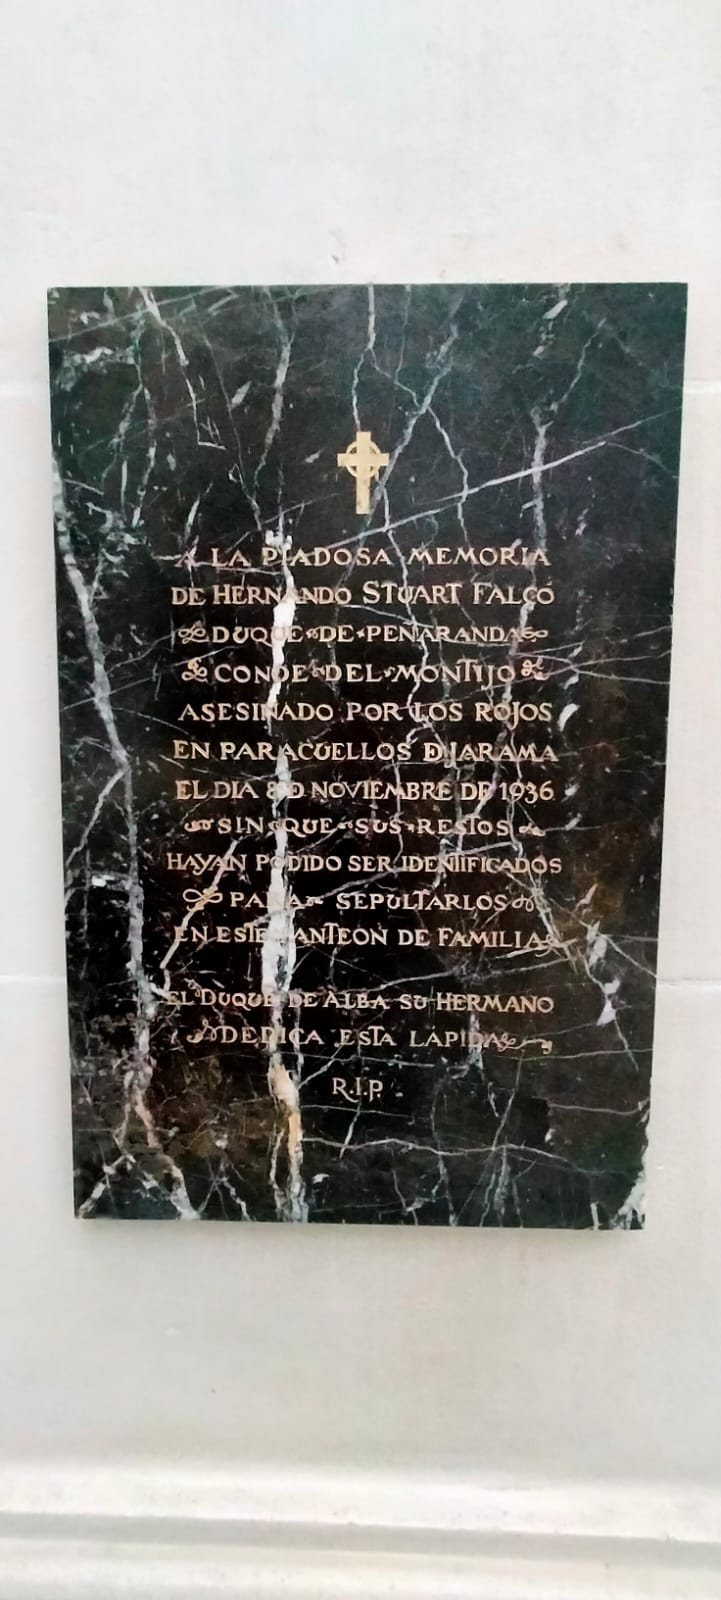 A LA PIADOSA MEMORIA
DE HERNANDO STUART FALCÓ
DUQUE DE PEÑARANDA
CONDE DEL MONTIJO
ASESINADO POR LOS ROJOS
EN PARACUELLOS DE JARAMA
EL DIA 8 D NOVIEMBRE DE 1936
SIN QUE SUS RESTOS
HAYAN PODIDO SER IDENTIFICADOS
PARA SEPULTARLOS
EN ESTE PANTEON DE FAMILIA
EL DUQUE DE ALBA SU HERMANO
DEDICA ESTA LAPIDA
R.I.P.